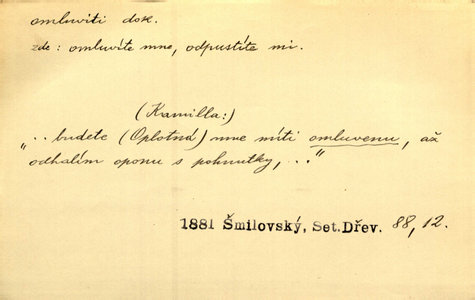 omluviti dok.
zde: omluvíte mne, odpustíte mi.
(Kamilla:)
„.. budete (Oplotná) mne míti omluvenu, až
odhalím oponu s pohnutky, ..."
1881 Šmilovský, Set.Dřev. 88, 12.